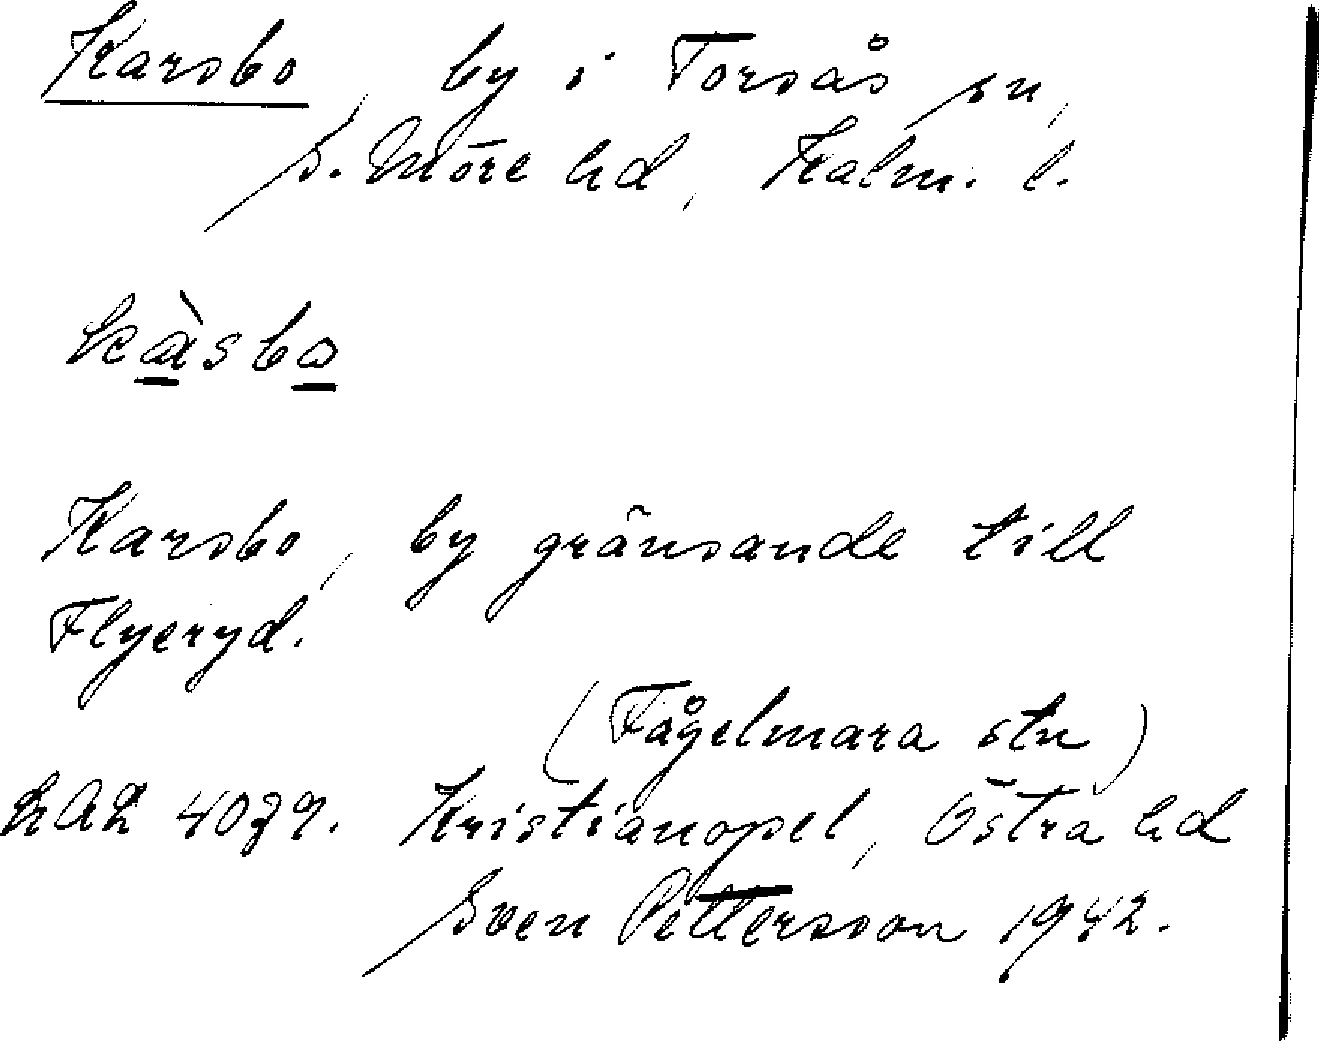 Karsbo, by i Torsås sn,
S. Möre hd, Kalm. l.
kàsbo
Karsbo, by gränsande till
Flyeryd.
(Fågelmara stn)
LAL 4079. Kristianopel, Östra hd
Sven Pettersson 1942.